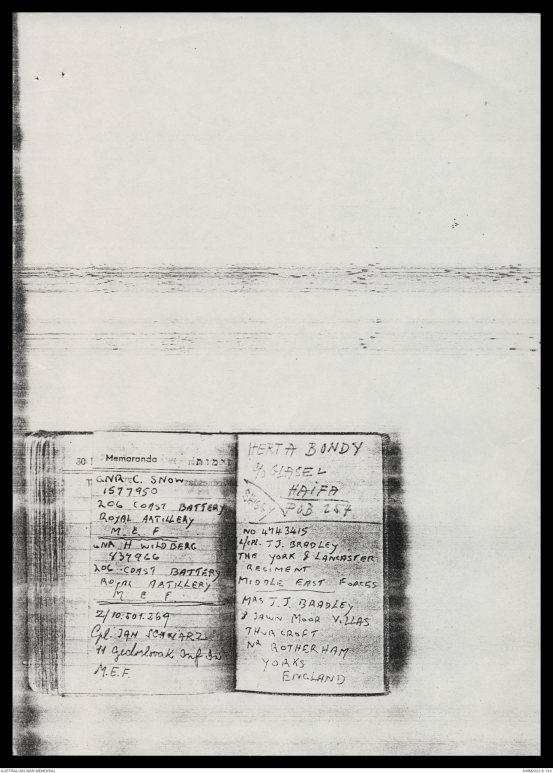 30
Memoranda
GNR C. SNOW
1577950
206 COAST BATTERY
ROYAL ARTILLERY
M E F
GNR H WILDBERG
837966
206 COAST BATTERY
ROYAL ARTILLERY
M E F
Z/10.501.269
Cpl. JAN SCHWARZ
11 Inf
M.E.F.
HERTA BONDY
c/o GLASEL
HAIFA
POB 247
NO 4743415
L/CPL. T.J. BRADLEY
THE YORK & LANCASTER
REGIMENT
MIDDLE EAST FORCES
MRS T.J. BRADLEY
8 SAWN MOOR VILLAS
THURCROFT
NR ROTHERHAM
YORKS
ENGLAND
AUSTRALIAN WAR MEMORIAL